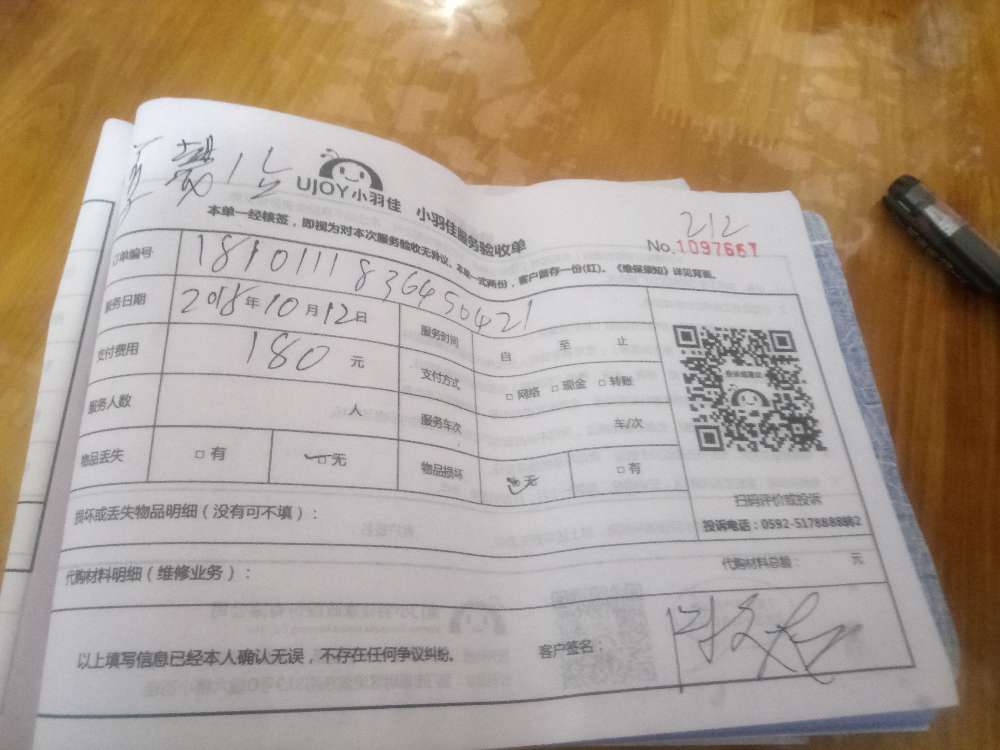 UJOY小羽佳 小羽佳服务验收单
212
No.1097667
本单一经核签，即视为对本次服务验收无异议。本单一式两份，客户留存一份(红)。《维保须知》详见背面。
订单编号 181011183645 0421
服务日期 2018年10月12日 服务时间 自 至 止
支付费用 180 元 支付方式 □ 网络 □ 现金 □ 转账
服务人数 人 服务车次 车/次
物品丢失 □ 有 □ 无 物品损坏 无 □ 有
扫码评价或投诉
投诉电话：0592-5178888转2
损坏或丢失物品明细（没有可不填）：
代购材料明细（维修业务）： 代购材料总额： 元
以上填写信息已经本人确认无误，不存在任何争议纠纷。 客户签名：